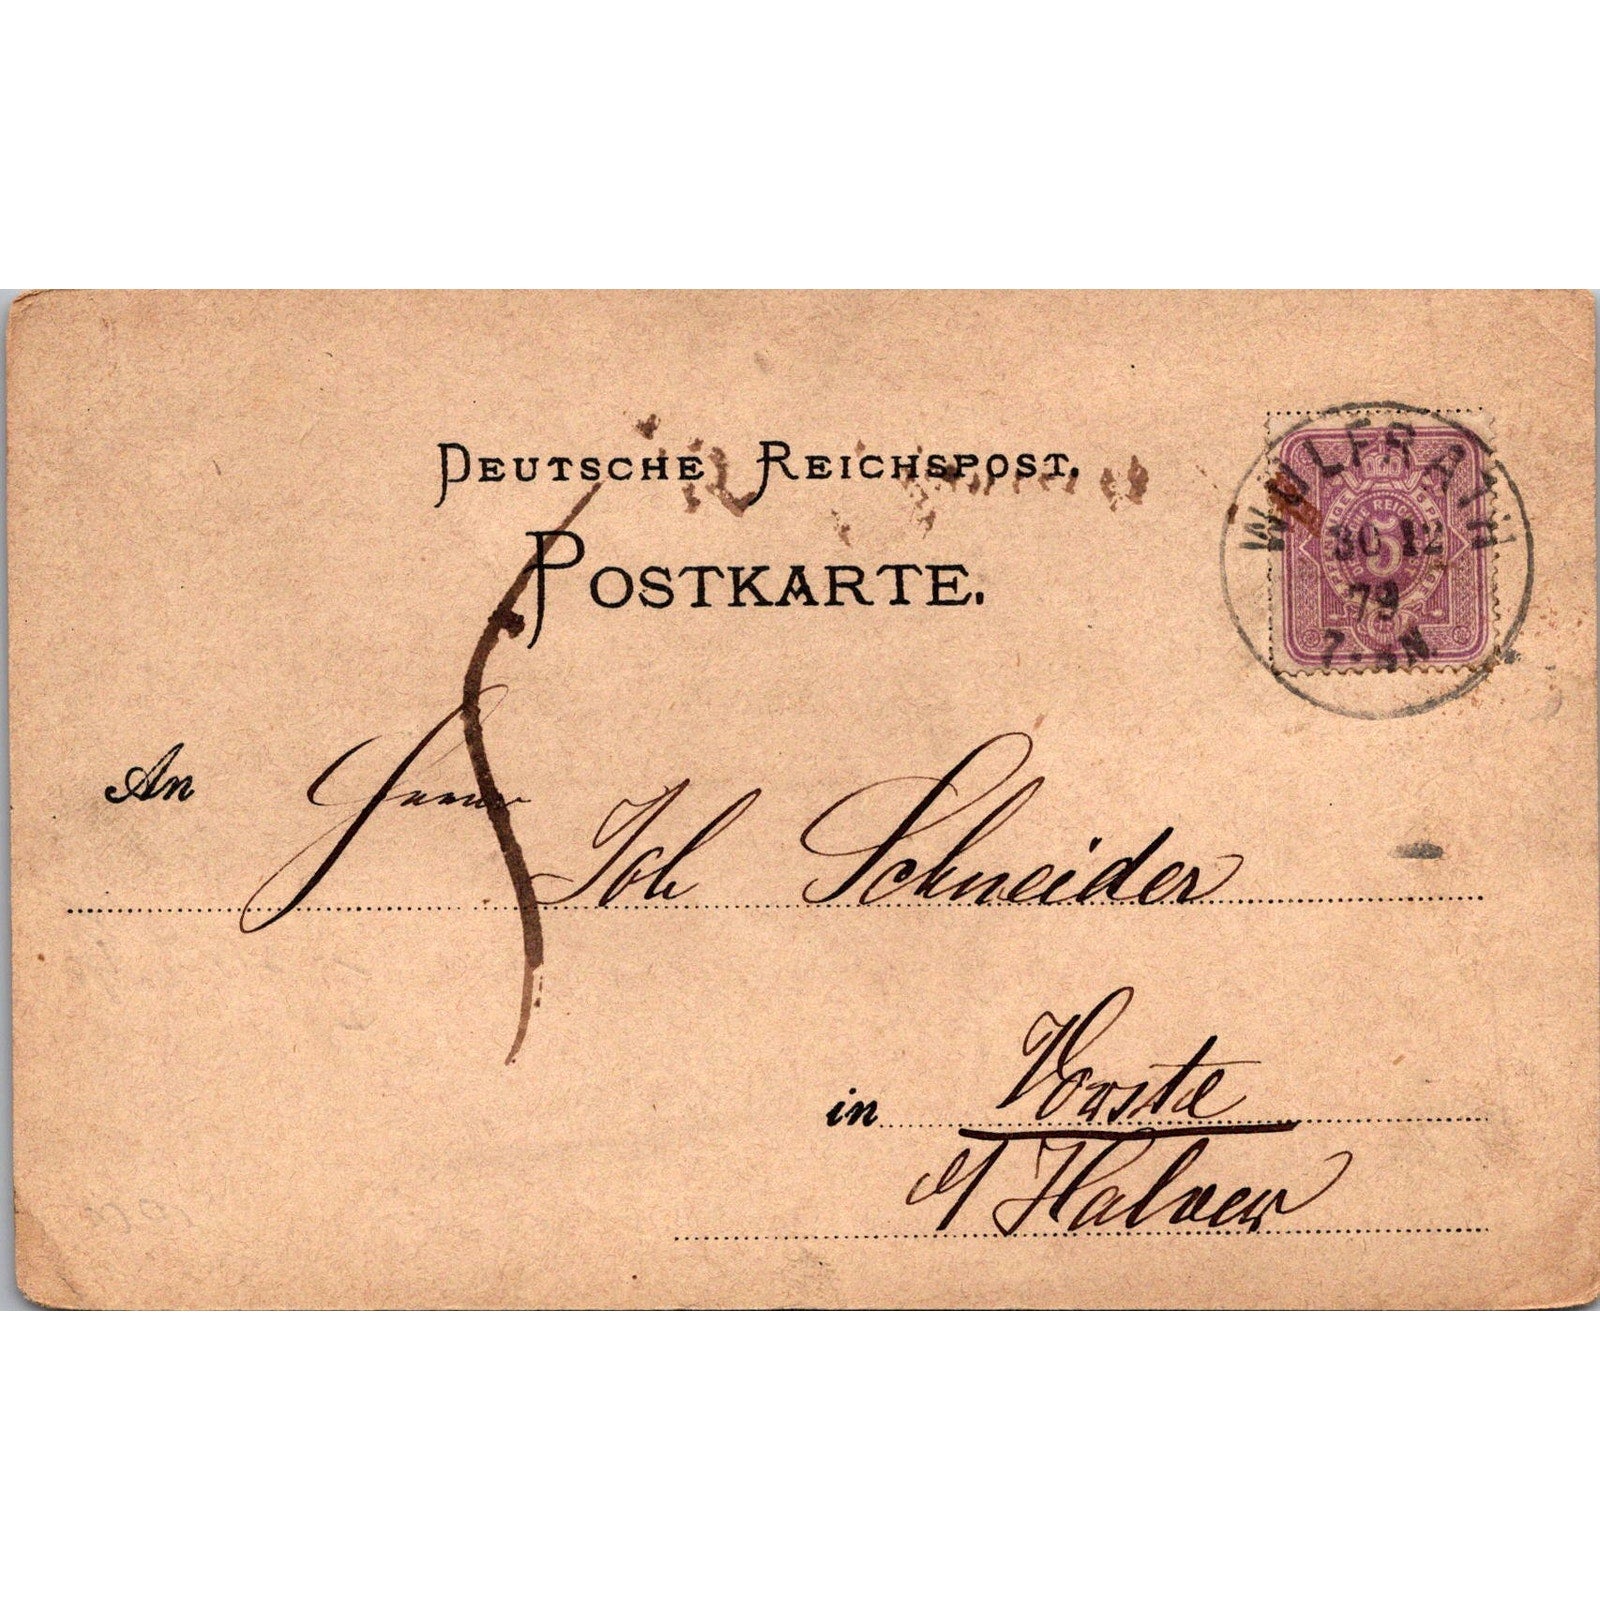 DEUTSCHE REICHSPOST.
POSTKARTE.
WÜLFRATH
30 12
79
7-8N.
5
An Herrn
Joh Schneider
in Vorste
b/ Halver